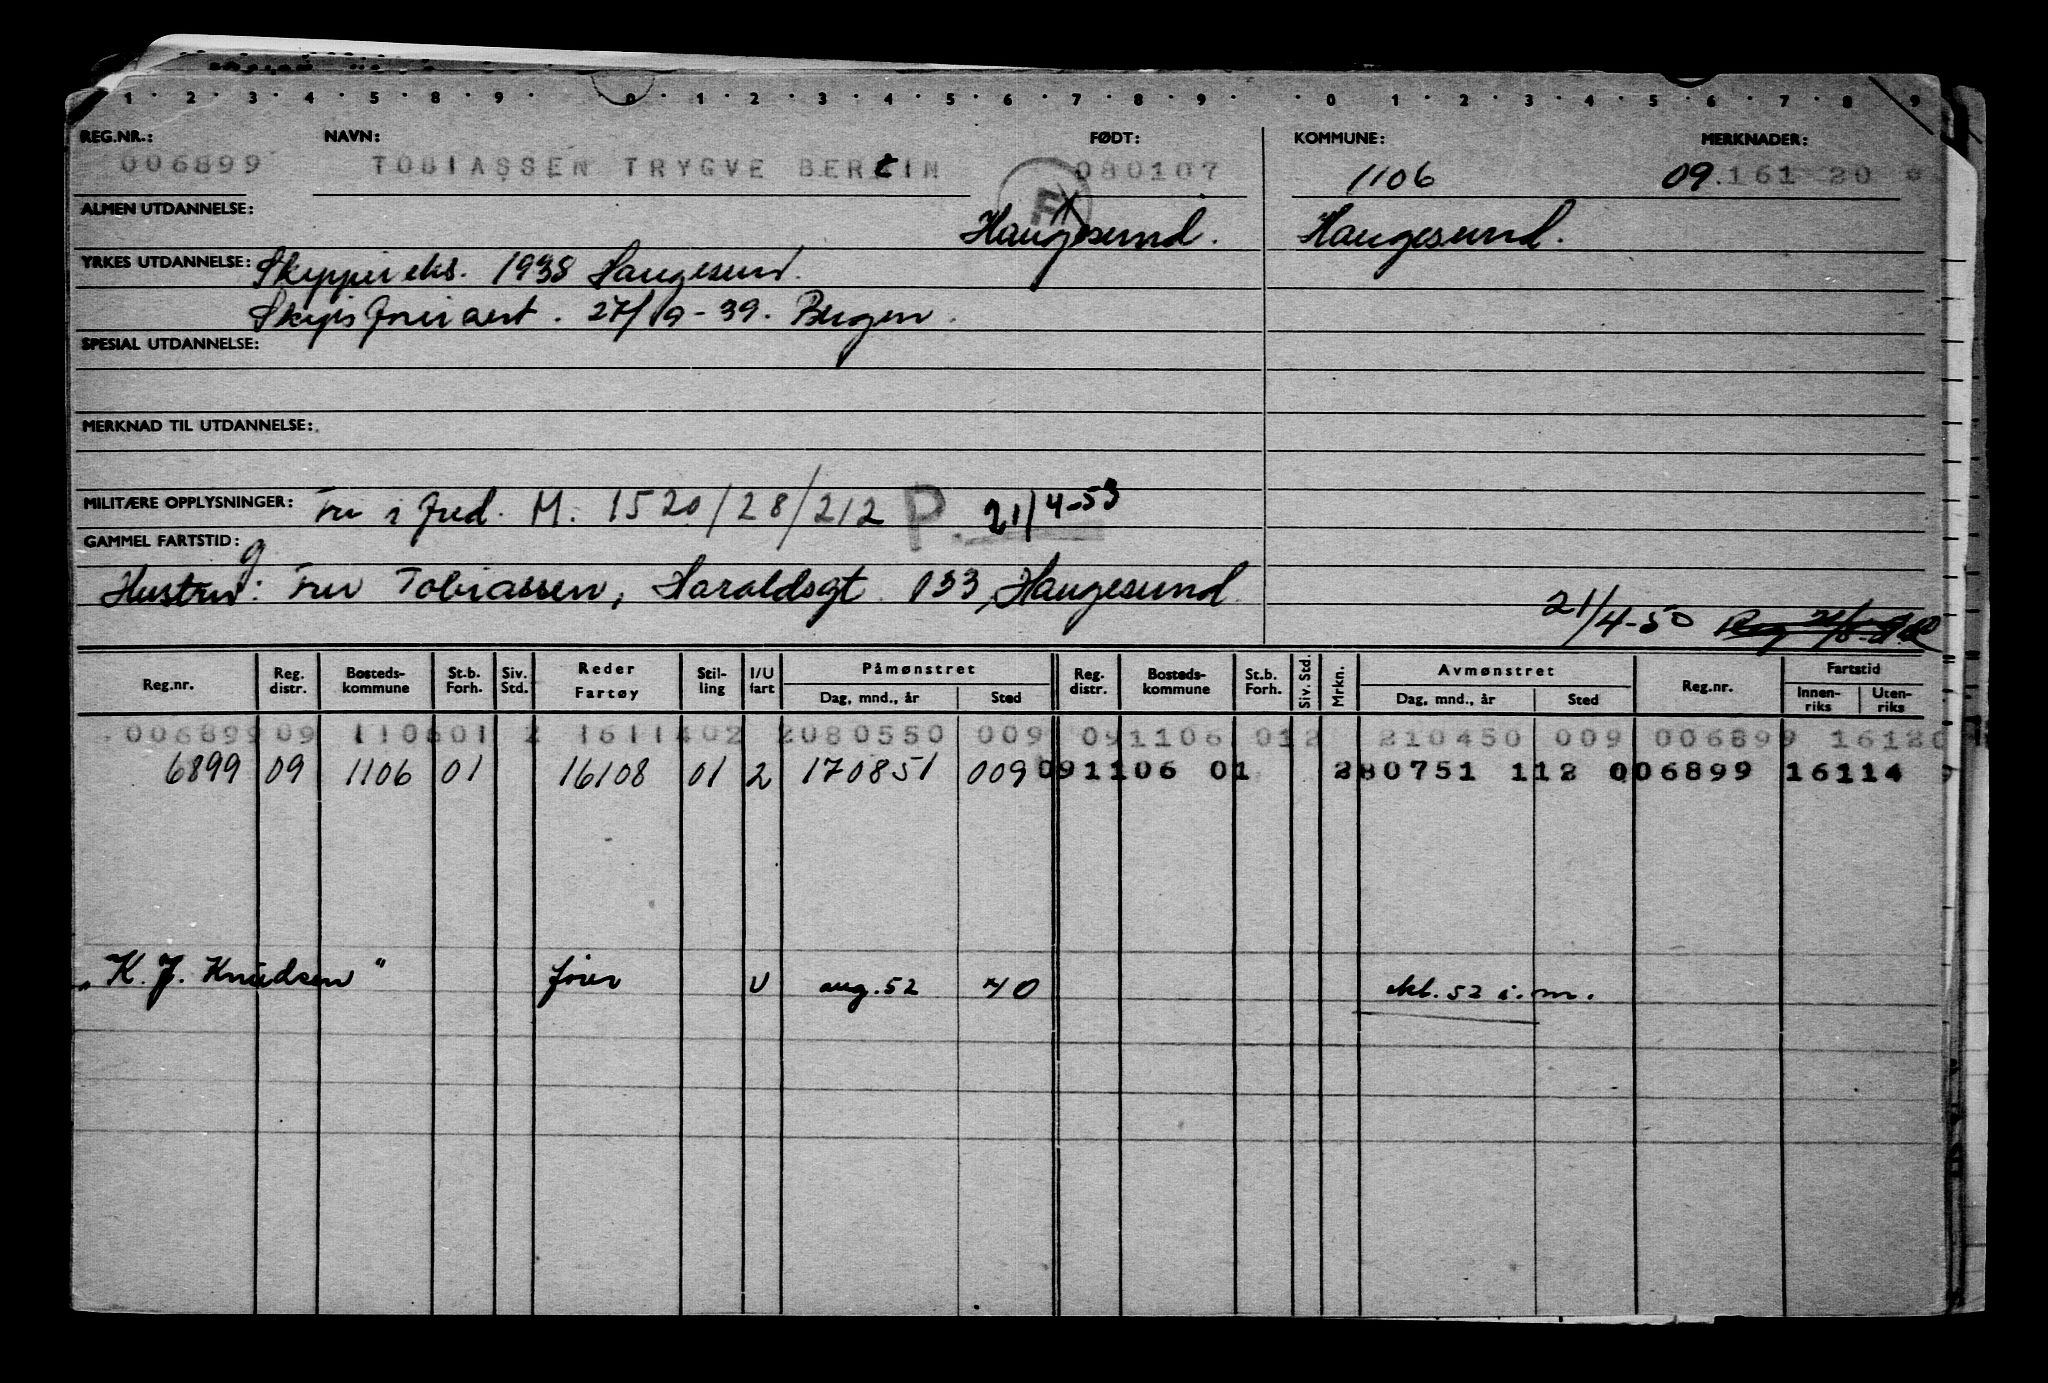 1 · 2 · 3 · 4 · 5 · 8 · 9 · 0 · 1 · 2 · 3 · 4 · 5 · 6 · 7 · 8 · 9 · 0 · 1 · 2 · 3 · 4 · 5 · 6 · 7 · 8 · 9
REG.NR.: NAVN: FØDT: KOMMUNE: MERKNADER:
006899 TOBIASSEN TRYGVE BERTIN 080107 1106 09.161 20
ALMEN UTDANNELSE: F Haugesund. Haugesund.
YRKES UTDANNELSE: Skipper eks. 1938 Haugesund.
Skipsfører sert. 27/9-39. Bergen.
SPESIAL UTDANNELSE:
MERKNAD TIL UTDANNELSE:
MILITÆRE OPPLYSNINGER: Fri i fred. M. 1520/28/212 P. 21/4-53
GAMMEL FARTSTID: g
Hustru: Fru Tobiassen, Haraldsgt 133, Haugesund.
21/4-50
Reg.nr. Reg. distr. Bosteds-kommune St.b. Forh. Siv. Std. Reder Fartøy Stil-ling I/U fart Påmønstret Dag, mnd., år Sted Reg. distr. Bosteds-kommune St.b. Forh. Siv. Std. Mrkn. Avmønstret Dag, mnd., år Sted Reg.nr. Fartstid Innen-riks Uten-riks
006899 09 110601 2 1611402 2080550 009 091106 012 210450 009 006899 16120
6899 09 1106 01 16108 01 2 170851 009 091106 01 280751 112 006899 16114
"K. J. Knudsen" fører U aug. 52 40 okt. 52 i.m.